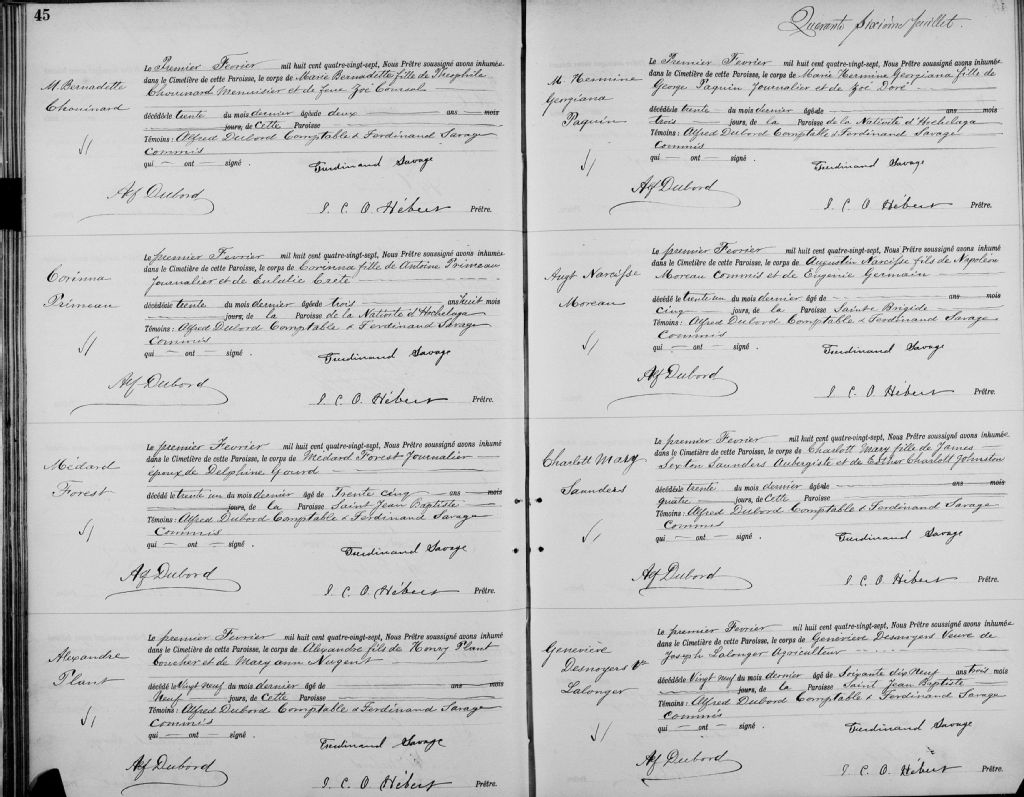 45
M. Bernadette
Chouinard
S/
Le Premier Fevrier mil huit cent quatre-vingt-sept, Nous Prêtre soussigné avons inhumé
dans le Cimetière de cette Paroisse, le corps de Marie Bernadette fille de Theophile
Chouinard Menuisier et de feue Zoé Coursol
décédé le trente du mois dernier âgé de deux ans mois
jours, de Cette Paroisse
Témoins : Alfred Dubord Comptable & Ferdinand Savage
Commis
qui — ont — signé .
Ferdinand Savage
Alf Dubord
J. C. O. Hébert Prêtre.
Corinna
Primeau
S/
Le premier Fevrier mil huit cent quatre-vingt-sept, Nous Prêtre soussigné avons inhumé
dans le Cimetière de cette Paroisse, le corps de Corinna fille de Antoine Primeau
journalier et de Eulalie Crete
décédé le trente du mois dernier âgé de trois ans huit mois
jours, de la Paroisse de la Nativité d'Hochelaga
Témoins : Alfred Dubord Comptable & Ferdinand Savage
Commis
qui — ont — signé .
Ferdinand Savage
Alf Dubord
J. C. O. Hébert Prêtre.
Médard
Forest
S/
Le premier Fevrier mil huit cent quatre-vingt-sept, Nous Prêtre soussigné avons inhumé
dans le Cimetière de cette Paroisse, le corps de Médard Forest Journalier
époux de Delphine Gourd
décédé le trente un du mois dernier âgé de Trente cinq ans mois
jours, de la Paroisse Saint Jean Baptiste
Témoins : Alfred Dubord Comptable & Ferdinand Savage
Commis
qui — ont — signé .
Ferdinand Savage
Alf Dubord
J. C. O. Hébert Prêtre.
Alexandre
Plant
S/
Le premier Fevrier mil huit cent quatre-vingt-sept, Nous Prêtre soussigné avons inhumé
dans le Cimetière de cette Paroisse, le corps de Alexandre fils de Henry Plant
Boucher et de Mary ann Nugent
décédé le Vingt Neuf du mois dernier âgé de ans mois
Neuf jours, de Cette Paroisse
Témoins : Alfred Dubord Comptable & Ferdinand Savage
Commis
qui — ont — signé .
Ferdinand Savage
Alf Dubord
J. C. O. Hébert Prêtre.
Quarante Sixième feuillet.
M. Hermine
Georgiana
Paquin
S/
Le Premier Fevrier mil huit cent quatre-vingt-sept, Nous Prêtre soussigné avons inhumé
dans le Cimetière de cette Paroisse, le corps de Marie Hermine Georgiana fille de
George Paquin Journalier et de Zoé Doré
décédé le trente du mois dernier âgé de ans mois
trois jours, de la Paroisse de la Nativité d'Hochelaga
Témoins : Alfred Dubord Comptable & Ferdinand Savage
Commis
qui — ont — signé .
Ferdinand Savage
Alf Dubord
J. C. O. Hébert Prêtre.
Augt Narcisse
Moreau
S/
Le premier Fevrier mil huit cent quatre-vingt-sept, Nous Prêtre soussigné avons inhumé
dans le Cimetière de cette Paroisse, le corps de Augustin Narcisse fils de Napoléon
Moreau Commis et de Eugenie Germain
décédé le trente un du mois dernier âgé de ans mois
cinq jours, de la Paroisse Sainte Brigide
Témoins : Alfred Dubord Comptable & Ferdinand Savage
Commis
qui — ont — signé .
Ferdinand Savage
Alf Dubord
J. C. O. Hébert Prêtre.
Charlott Mary
Saunders
S/
Le premier Fevrier mil huit cent quatre-vingt-sept, Nous Prêtre soussigné avons inhumé
dans le Cimetière de cette Paroisse, le corps de Charlott Mary fille de James
Sexton Saunders Aubergiste et de Esther Charlott Johnston
décédé le trente du mois dernier âgé de ans mois
quatre jours, de Cette Paroisse
Témoins : Alfred Dubord Comptable & Ferdinand Savage
Commis
qui — ont — signé .
Ferdinand Savage
Alf Dubord
J. C. O. Hébert Prêtre.
Geneviève
Desnoyers Vve
Lalonger
S/
Le premier Fevrier mil huit cent quatre-vingt-sept, Nous Prêtre soussigné avons inhumé
dans le Cimetière de cette Paroisse, le corps de Geneviève Desnoyers Veuve de
Joseph Lalonger Agriculteur
décédé le Vingt Neuf du mois dernier âgé de Soixante dix Neuf ans trois mois
jours, de la Paroisse Saint Jean Baptiste
Témoins : Alfred Dubord Comptable & Ferdinand Savage
Commis
qui — ont — signé .
Ferdinand Savage
Alf Dubord
J. C. O. Hébert Prêtre.